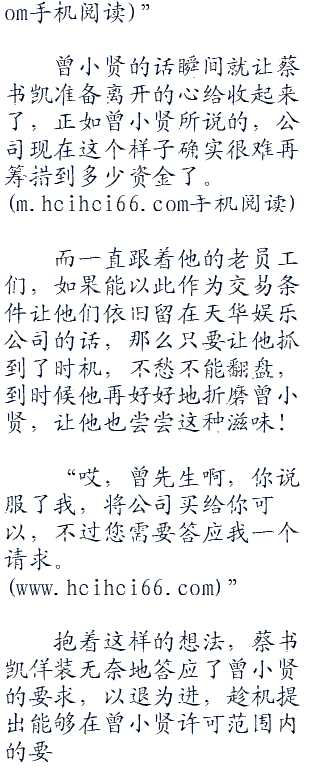 om手机阅读)”
曾小贤的话瞬间就让蔡
书凯准备离开的心给收起来
了，正如曾小贤所说的，公
司现在这个样子确实很难再
筹措到多少资金了。
(m.hcihci66.com手机阅读)
而一直跟着他的老员工
们，如果能以此作为交易条
件让他们依旧留在天华娱乐
公司的话，那么只要让他抓
到了时机，不愁不能翻盘，
到时候他再好好地折磨曾小
贤，让他也尝尝这种滋味！
“哎，曾先生啊，你说
服了我，将公司买给你可
以，不过您需要答应我一个
请求。
(www.hcihci66.com)”
抱着这样的想法，蔡书
凯佯装无奈地答应了曾小贤
的要求，以退为进，趁机提
出能够在曾小贤许可范围内
的要